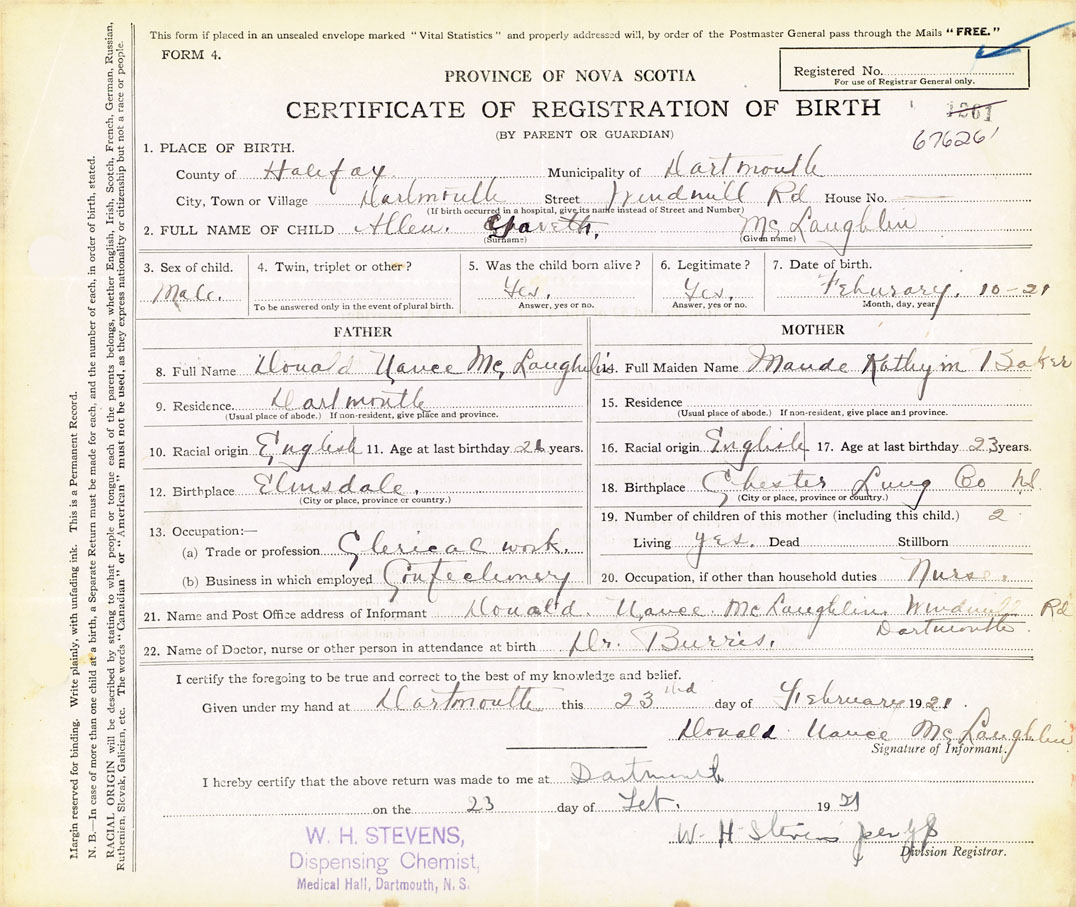 This form if placed in an unsealed envelope marked "Vital Statistics" and properly addressed will, by order of the Postmaster General pass through the Mails "FREE."
FORM 4.
Registered No.
For use of Registrar General only.
PROVINCE OF NOVA SCOTIA
CERTIFICATE OF REGISTRATION OF BIRTH
(BY PARENT OR GUARDIAN)
1261
67626
1. PLACE OF BIRTH.
County of Halifax Municipality of Dartmouth
City, Town or Village Dartmouth Street Windmill Rd House No.
(If birth occurred in a hospital, give its name instead of Street and Number)
2. FULL NAME OF CHILD Allen. McLaughlin
(Surname) (Given name)
3. Sex of child. 4. Twin, triplet or other? 5. Was the child born alive? 6. Legitimate? 7. Date of birth.
Male. Yes. Yes. Feburary. 10-21
To be answered only in the event of plural birth. Answer, yes or no. Answer, yes or no. Month, day, year.
FATHER
8. Full Name Donald Vance McLaughlin
9. Residence. Dartmouth
(Usual place of abode.) If non-resident, give place and province.
10. Racial origin English 11. Age at last birthday years.
12. Birthplace Elmsdale.
(City or place, province or country.)
13. Occupation:—
(a) Trade or profession Clerical work.
(b) Business in which employed Confectionery
MOTHER
14. Full Maiden Name Maude Kathryn Baker
15. Residence
(Usual place of abode.) If non-resident, give place and province.
16. Racial origin English 17. Age at last birthday 23 years.
18. Birthplace Chester Lung Co
(City or place, province or country.)
19. Number of children of this mother (including this child.) 2
Living yes. Dead Stillborn
20. Occupation, if other than household duties Nurse.
21. Name and Post Office address of Informant Donald Vance McLaughlin. Windmill Rd
Dartmouth.
22. Name of Doctor, nurse or other person in attendance at birth Dr. Burris.
I certify the foregoing to be true and correct to the best of my knowledge and belief.
Given under my hand at Dartmouth this 23 day of February 1921.
Donald Vance McLaughlin
Signature of Informant.
I hereby certify that the above return was made to me at Dartmouth
on the 23 day of Feb. 1921
W. H. Stevens per
Division Registrar.
W. H. STEVENS,
Dispensing Chemist,
Medical Hall, Dartmouth, N. S.
Margin reserved for binding. Write plainly, with unfading ink. This is a Permanent Record.
N. B.—In case of more than one child at a birth, a Separate Return must be made for each, and the number of each, in order of birth, stated.
RACIAL ORIGIN will be described by stating to what people or tongue each of the parents belongs, whether English, Irish, Scotch, French, German, Russian,
Ruthenian, Slovak, Galician, etc. The words "Canadian" or "American" must not be used, as they express nationality or citizenship but not a race or people.